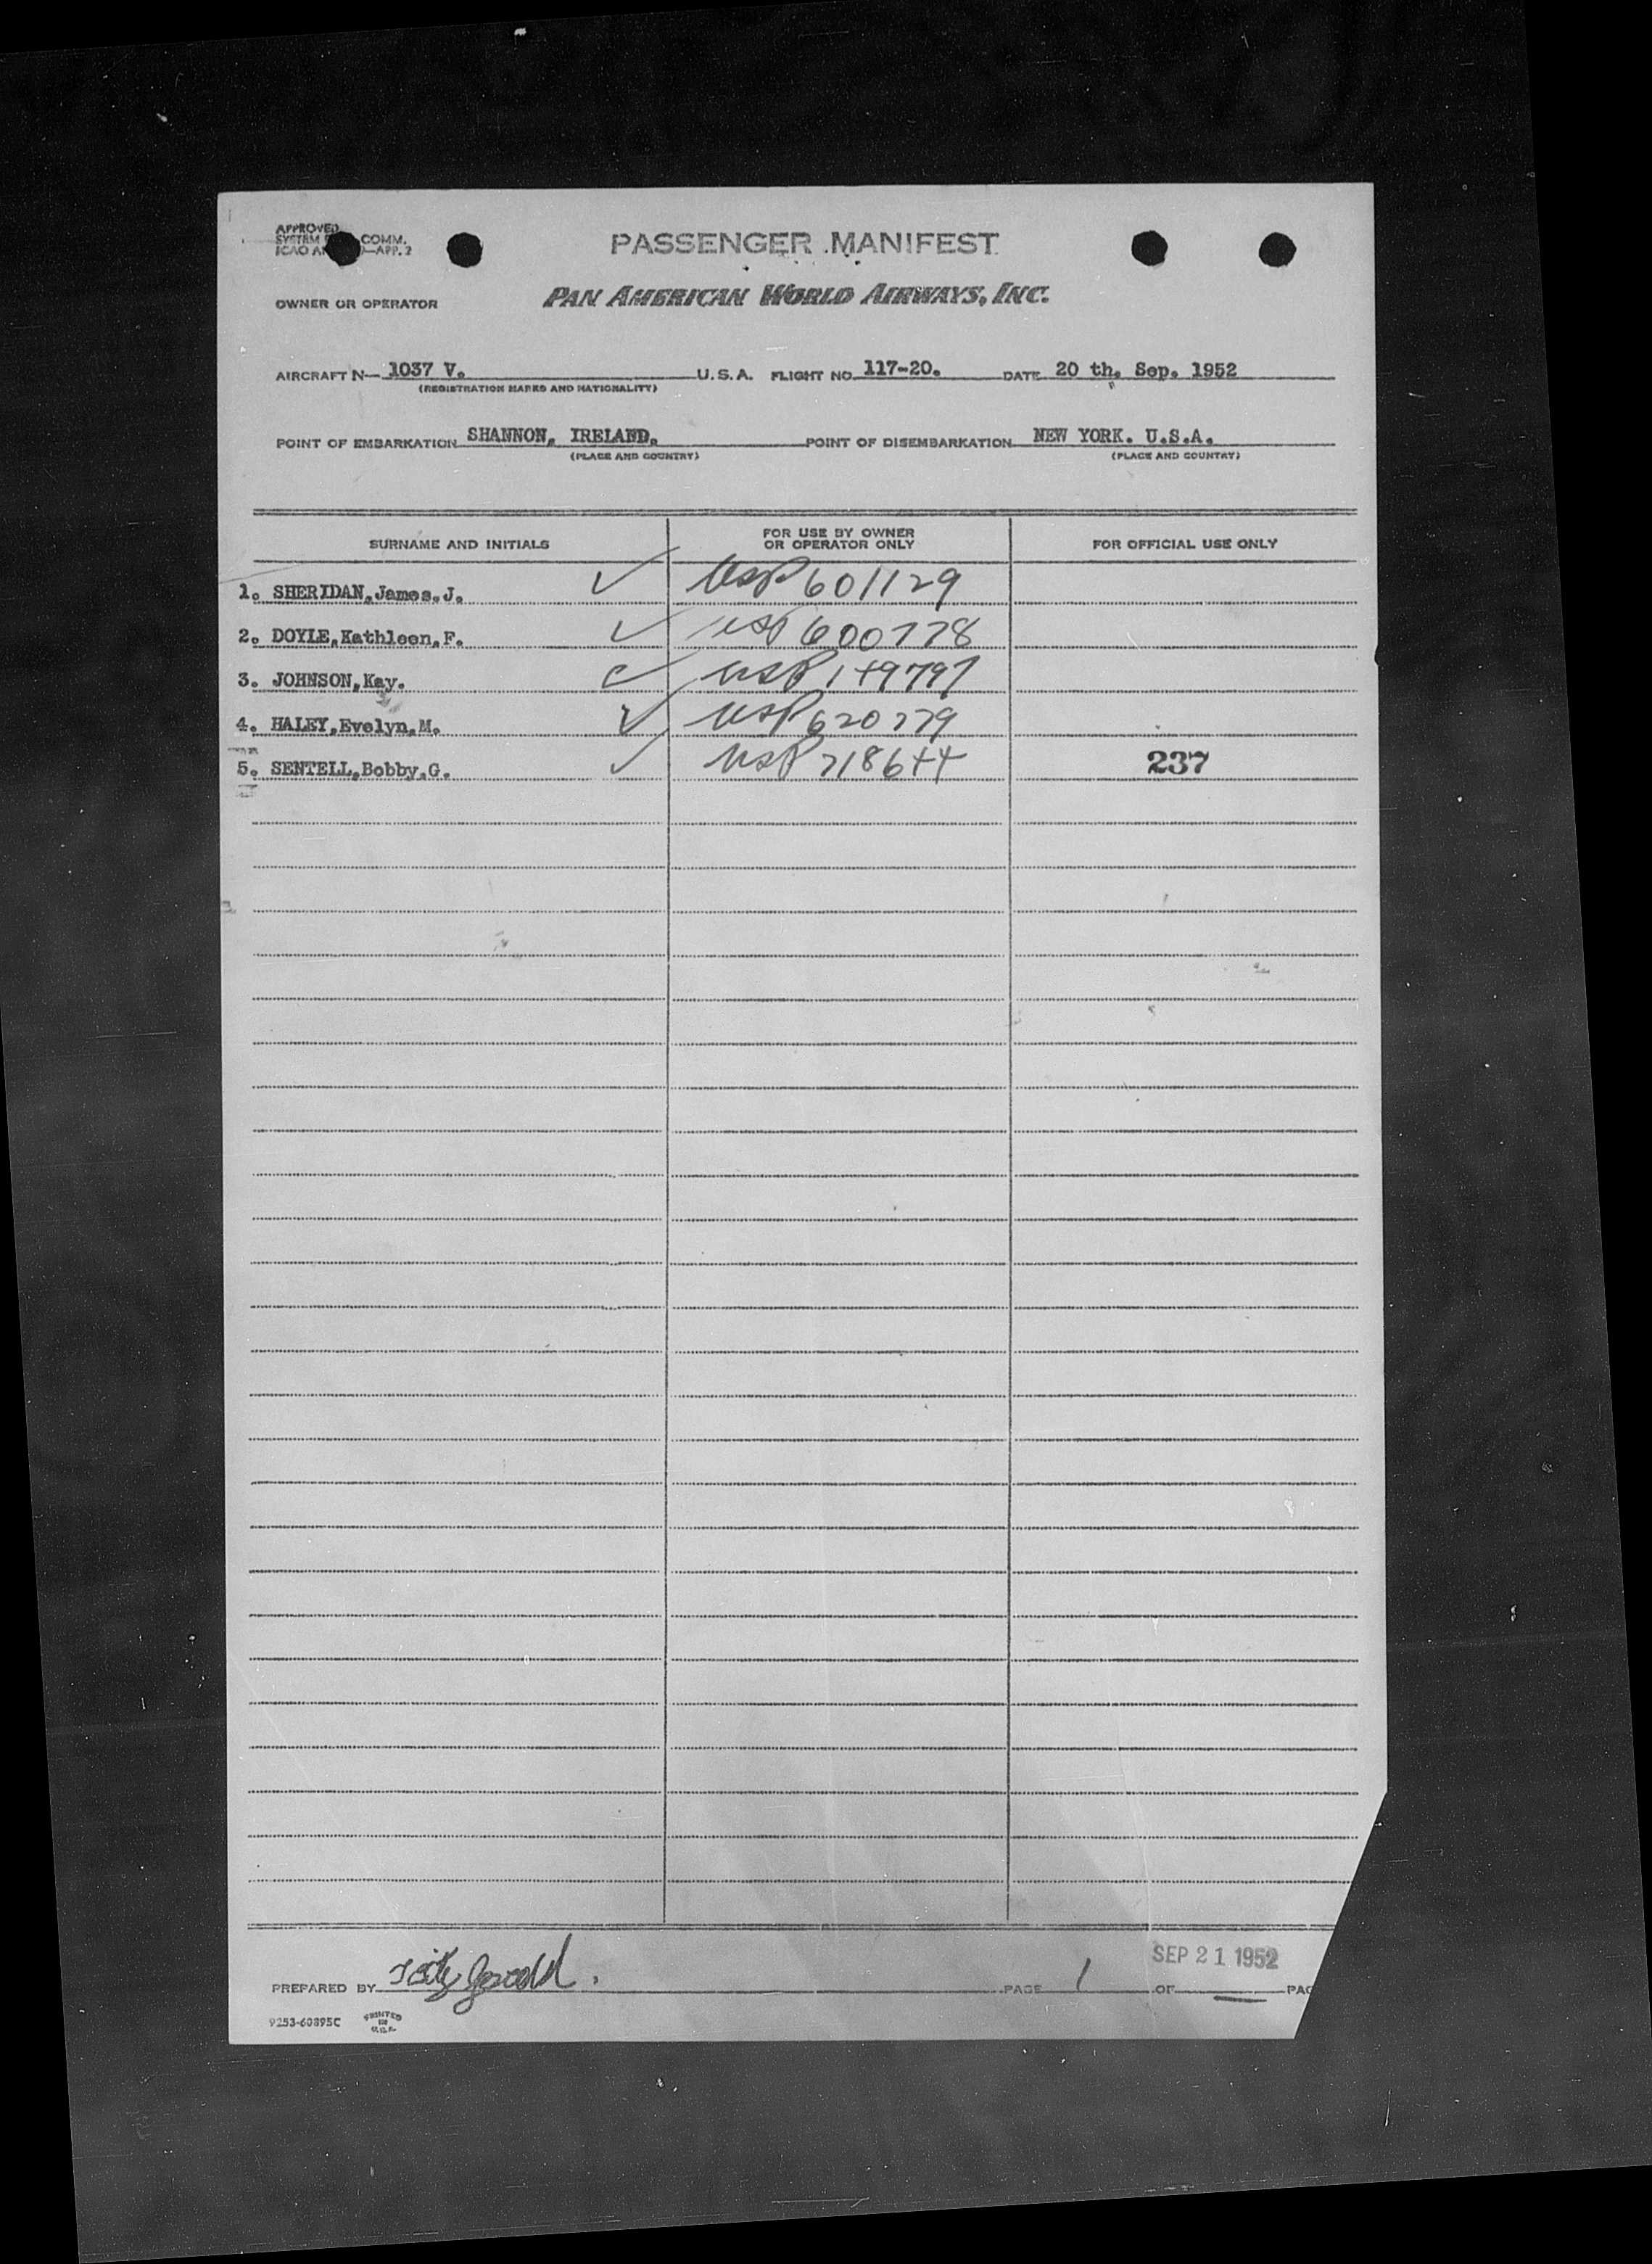 APPROVED
SYSTEM COMM.
ICAO AN —APP. 2
PASSENGER MANIFEST
OWNER OR OPERATOR PAN AMERICAN WORLD AIRWAYS, INC.
AIRCRAFT N— 1037 V. U.S.A. FLIGHT NO. 117-20. DATE 20 th. Sep. 1952
(REGISTRATION MARKS AND NATIONALITY)
POINT OF EMBARKATION SHANNON, IRELAND. POINT OF DISEMBARKATION NEW YORK. U.S.A.
(PLACE AND COUNTRY) (PLACE AND COUNTRY)
SURNAME AND INITIALS FOR USE BY OWNER OR OPERATOR ONLY FOR OFFICIAL USE ONLY
1. SHERIDAN,James.J. ✓ USP 601129
2. DOYLE,Kathleen,F. ✓ USP 600778
3. JOHNSON,Kay. ✓ USP 149797
4. HALEY,Evelyn,M. ✓ USP 620279
5. SENTELL,Bobby,G. ✓ USP 218644 237
SEP 21 1952
PREPARED BY Fitzgerald. PAGE 1 OF PAG
9253-60895C PRINTED IN U.S.A.